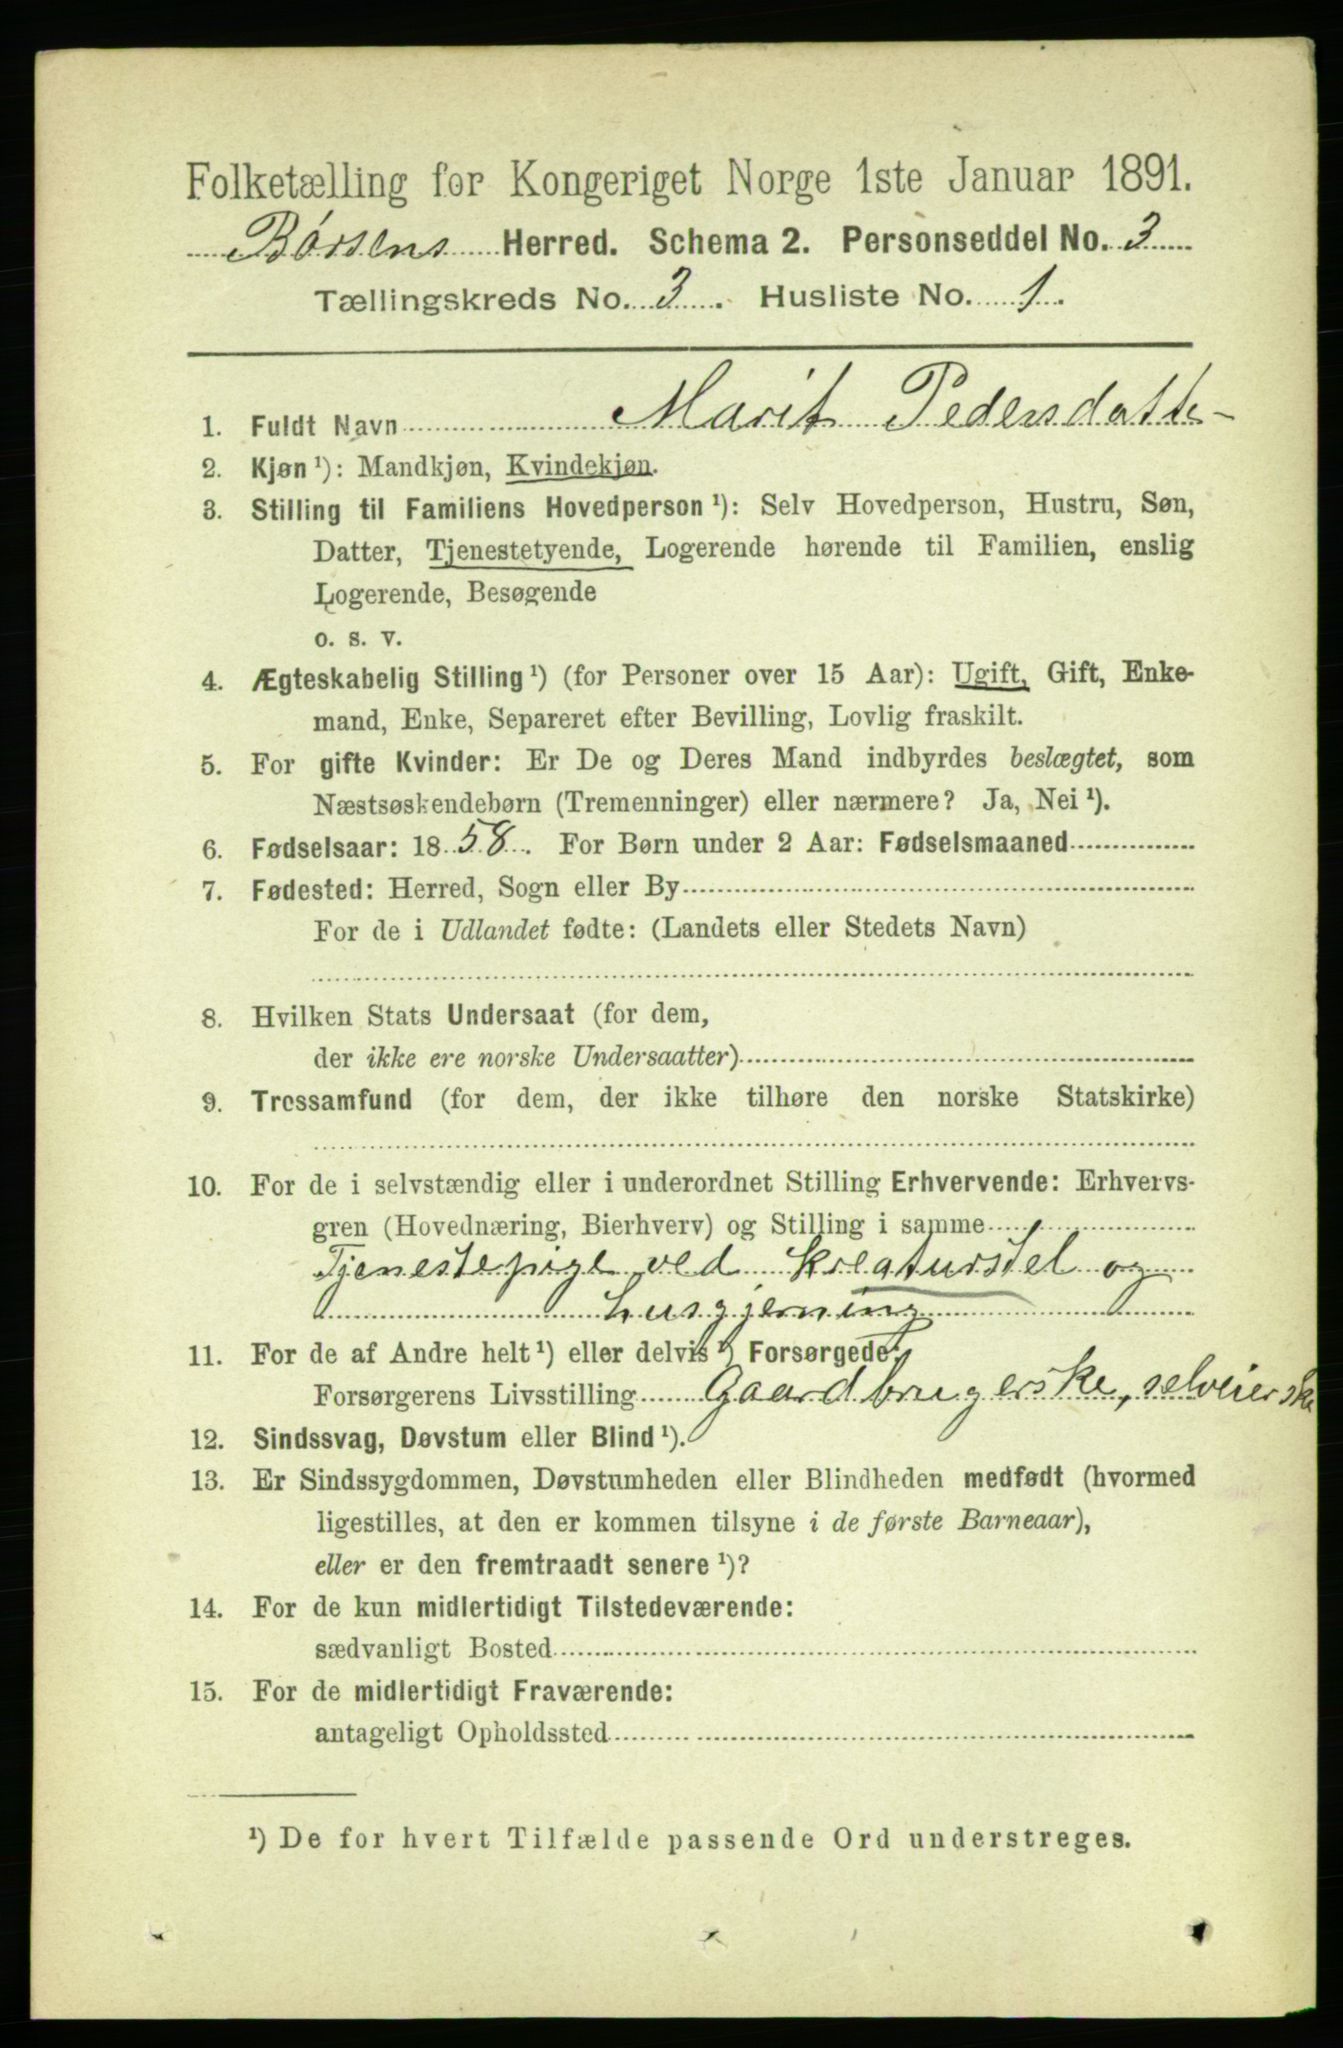 Folketælling for Kongeriget Norge 1ste Januar 1891.
Børsens Herred. Schema 2. Personseddel No. 3
Tællingskreds No. 3. Husliste No. 1.
1. Fuldt Navn Marit Pedersdatte-
2. Kjøn¹): Mandkjøn, Kvindekjøn.
3. Stilling til Familiens Hovedperson¹): Selv Hovedperson, Hustru, Søn,
Datter, Tjenestetyende, Logerende hørende til Familien, enslig
Logerende, Besøgende
o. s. v.
4. Ægteskabelig Stilling¹) (for Personer over 15 Aar): Ugift, Gift, Enke-
mand, Enke, Separeret efter Bevilling, Lovlig fraskilt.
5. For gifte Kvinder: Er De og Deres Mand indbyrdes beslægtet, som
Næstsøskendebørn (Tremenninger) eller nærmere? Ja, Nei¹).
6. Fødselsaar: 1858. For Børn under 2 Aar: Fødselsmaaned
7. Fødested: Herred, Sogn eller By
For de i Udlandet fødte: (Landets eller Stedets Navn)
8. Hvilken Stats Undersaat (for dem,
der ikke ere norske Undersaatter)
9. Trossamfund (for dem, der ikke tilhøre den norske Statskirke)
10. For de i selvstændig eller i underordnet Stilling Erhvervende: Erhvervs-
gren (Hovednæring, Bierhverv) og Stilling i samme
Tjenestepige ved kreaturstel og
husgjerning
11. For de af Andre helt¹) eller delvis¹) Forsørgede:
Forsørgerens Livsstilling Gaardbrugerske, selveierske
12. Sindssvag, Døvstum eller Blind¹).
13. Er Sindssygdommen, Døvstumheden eller Blindheden medfødt (hvormed
ligestilles, at den er kommen tilsyne i de første Barneaar),
eller er den fremtraadt senere¹)?
14. For de kun midlertidigt Tilstedeværende:
sædvanligt Bosted
15. For de midlertidigt Fraværende:
antageligt Opholdssted
¹) De for hvert Tilfælde passende Ord understreges.